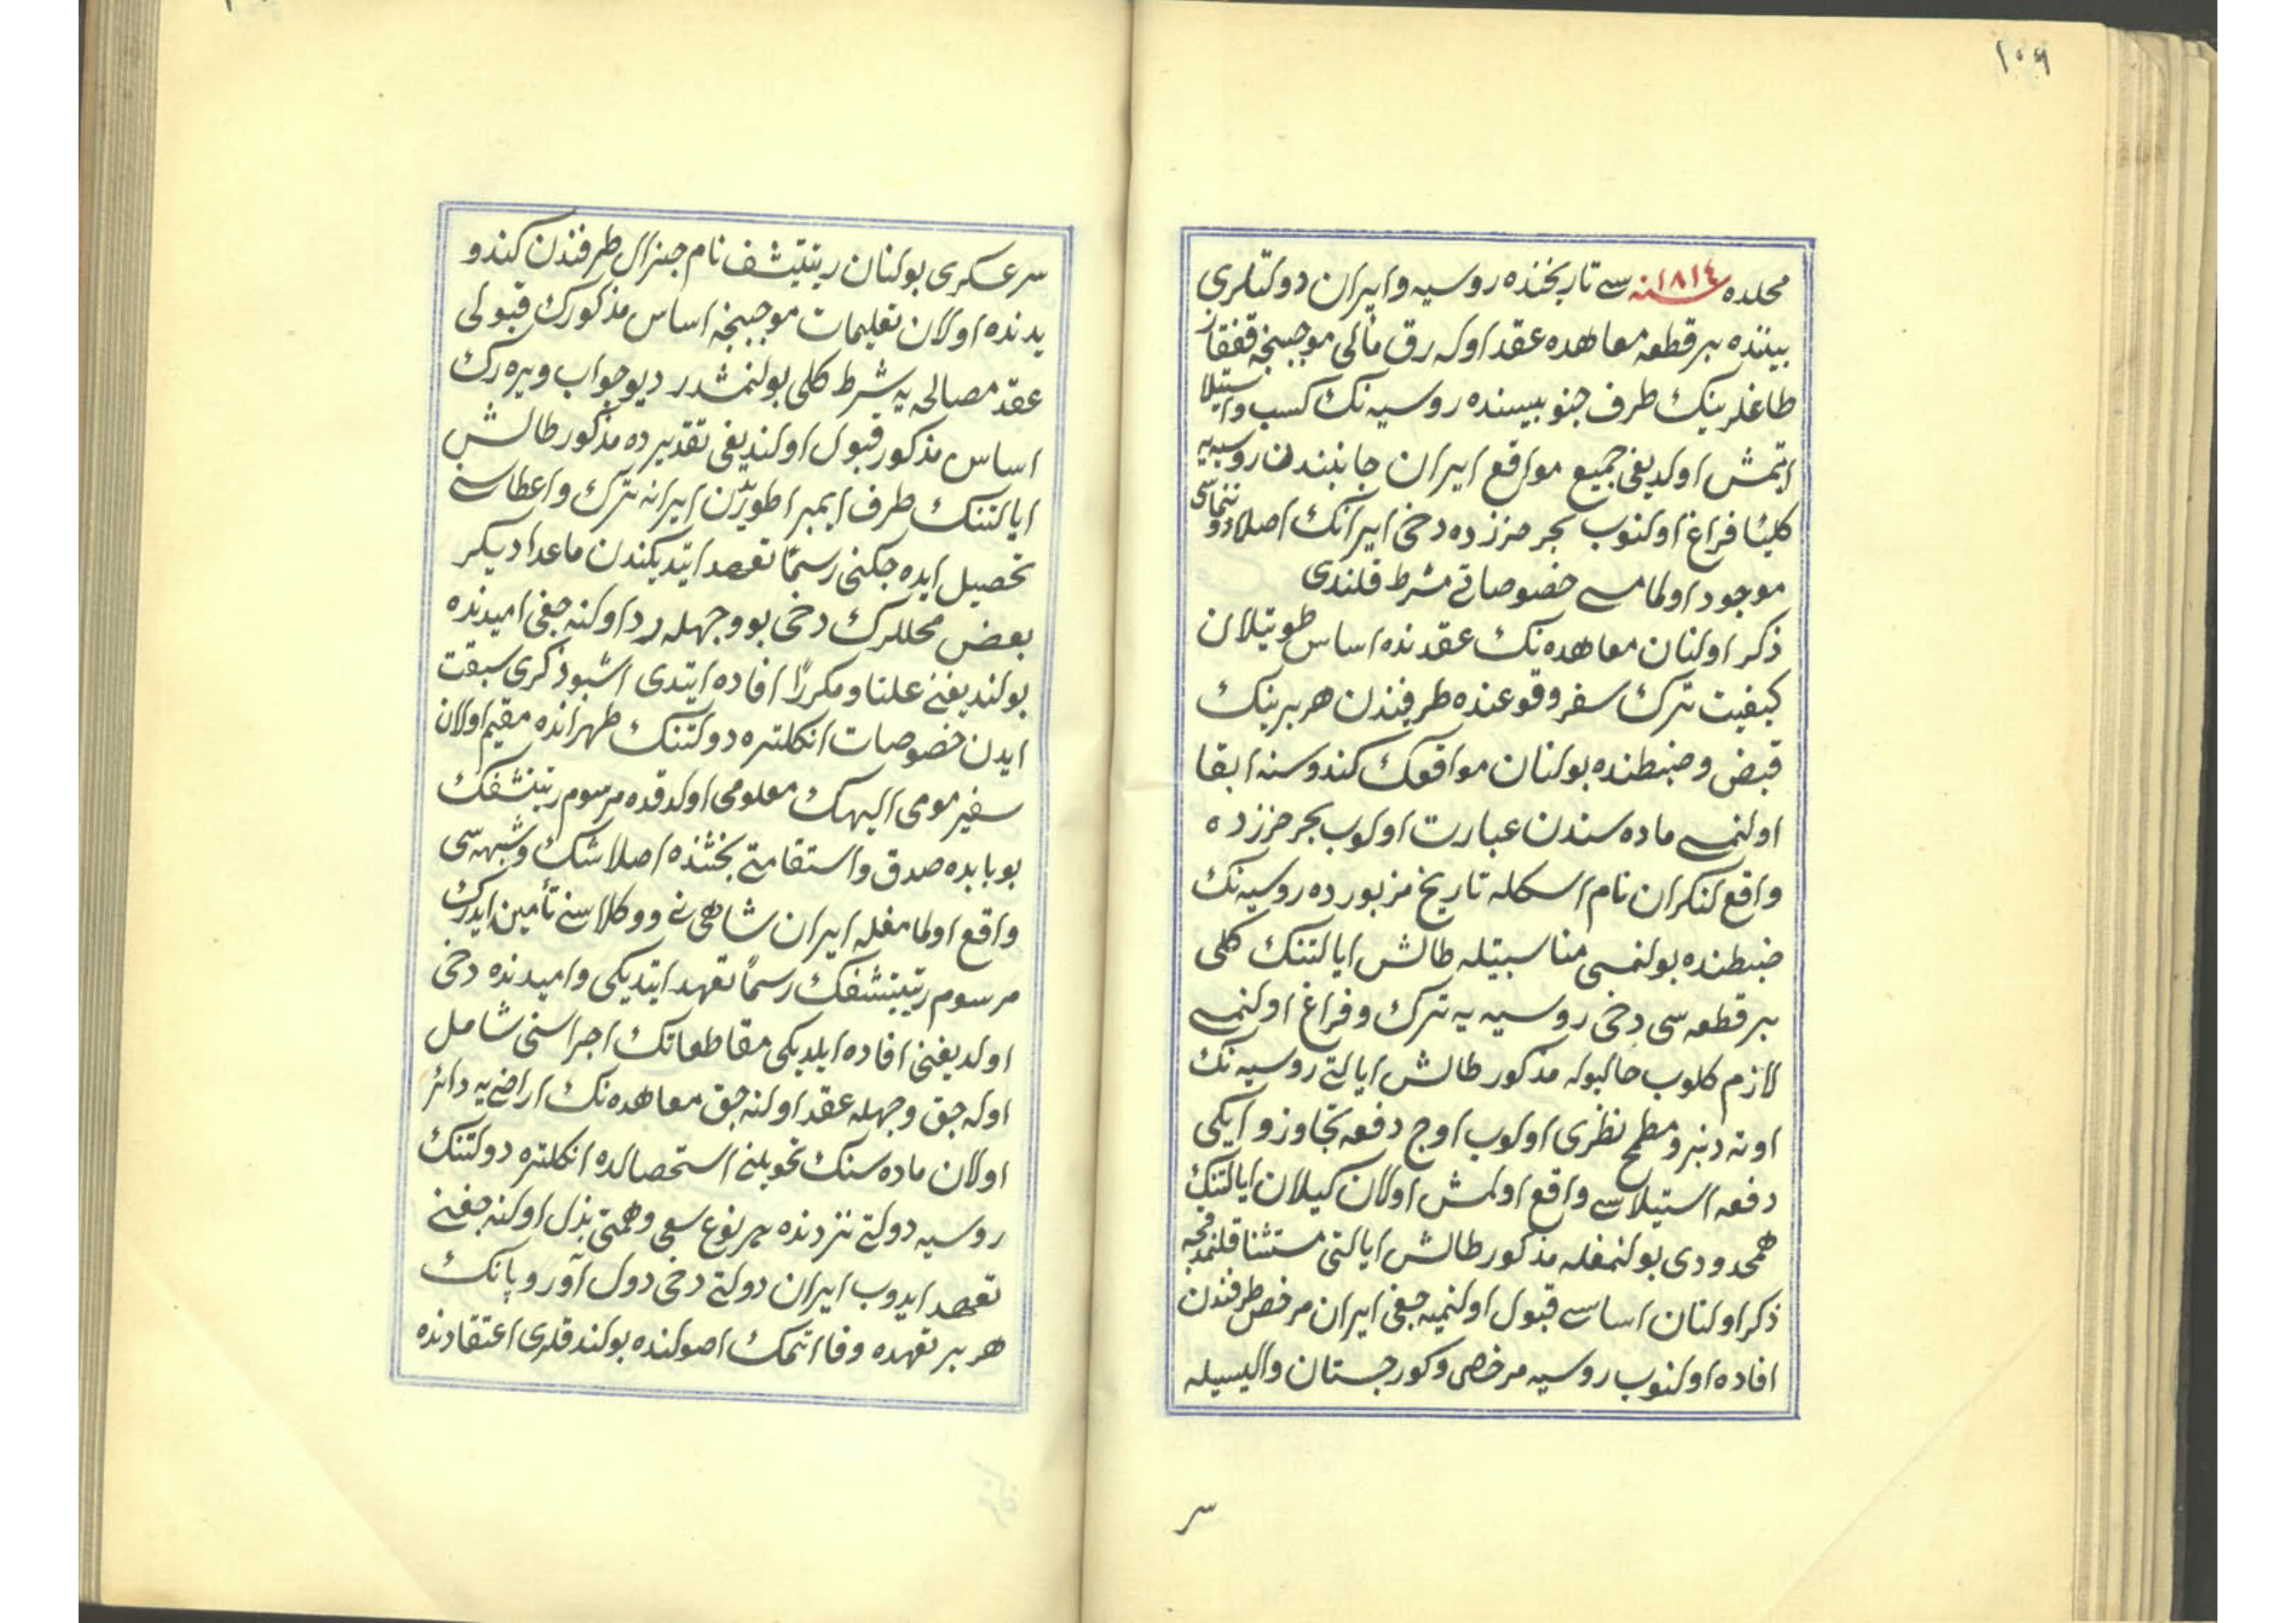 ١٠٦
محلده ١٨١٤ سنه سے تاريخنده روسيه وايران دولتلرى
بيننده بر قطعه معاهده عقد اوله رق مآلى موجبنجه قفقاز
طاغلرينك طرف جنوبيسنده روسيه نك كسب واستيلا
ايتمش اولديغى جميع مواقع ايران جانبندن روسيه يه
كليًا فراغ اولنوب بحر خزرده دخى ايرانك اصلا دوننماسى
موجود اولمامسے خصوصاتے شرط قلندى
ذكر اولنان معاهده نك عقدنده اساس طوتيلان
كيفيت ترك سفر وقوعنده طرفيندن هر برينك
قبض وضبطنده بولنان مواقعك كندوسنه ابقا
اولنمسے ماده سندن عبارت اولوب بحر خزرده
واقع لنكران نام اسكله تاريخ مزبورده روسيه نك
ضبطنده بولنمسى مناسبتيله طالش ايالتنك كلى
بر قطعه سى دخى روسيه يه ترك وفراغ اولنمسے
لازم كلوب حالبوكه مذكور طالش ايالتے روسيه نك
اوته دنبرو مطمح نظرى اولوب اوچ دفعه تجاوز و ايكى
دفعه استيلاسے واقع اولمش اولان كيلان ايالتنك
همحدودى بولنمغله مذكور طالش ايالتى مستثنا قلنمدقجه
ذكر اولنان اساسے قبول اولنميه جغى ايران مرخص طرفندن
افاده اولنوب روسيه مرخصى وكورجستان واليسيله
سر
سرعسكرى بولنان رتيتشف نام جنرال طرفندن كندو
يدنده اولان تعليمات موجبنجه اساس مذكورك قبولى
عقد مصالحه يه شرط كلى بولنمشدر ديو جواب ويره رك
اساس مذكور قبول اولنديغى تقديرده مذكور طالش
ايالتنك طرف ايمپراطوريدن ايرانه ترك واعطاسنے
تحصيل ايده جكنى رسمًا تعهد ايتديكندن ماعدا ديكر
بعض محللرك دخى بو وجهله رد اولنه جغى اميدنده
بولنديغنے علنا ومكررًا افاده ايتدى اشبو ذكرى سبقت
ايدن خصوصات انكلتره دولتنك طهرانده مقيم اولان
سفير مومى اليهك معلومى اولدقده مرسوم رتيتشفك
بو بابده صدق واستقامتے بحثنده اصلا شك وشبهه سى
واقع اولمامغله ايران شاهى نے ووكلاسنے تأمين ايدرك
مرسوم رتيتشفك رسمًا تعهد ايتديكى واميدنده دخى
اولديغنى افاده ايلديكى مقاطعاتك اجراسنى شامل
اوله جق وجهله عقد اولنه جق معاهده نك اراضے يه دائر
اولان ماده سنك تحويلنے استحصالده انكلتره دولتنك
روسيه دولتے نزدنده هر نوع سعى وهمتى بذل اولنه جغنے
تعهد ايدوب ايران دولتے دخى دول آوروپانك
هر بر تعهده وفا اتمك اصولنده بولندقلرى اعتقادنده